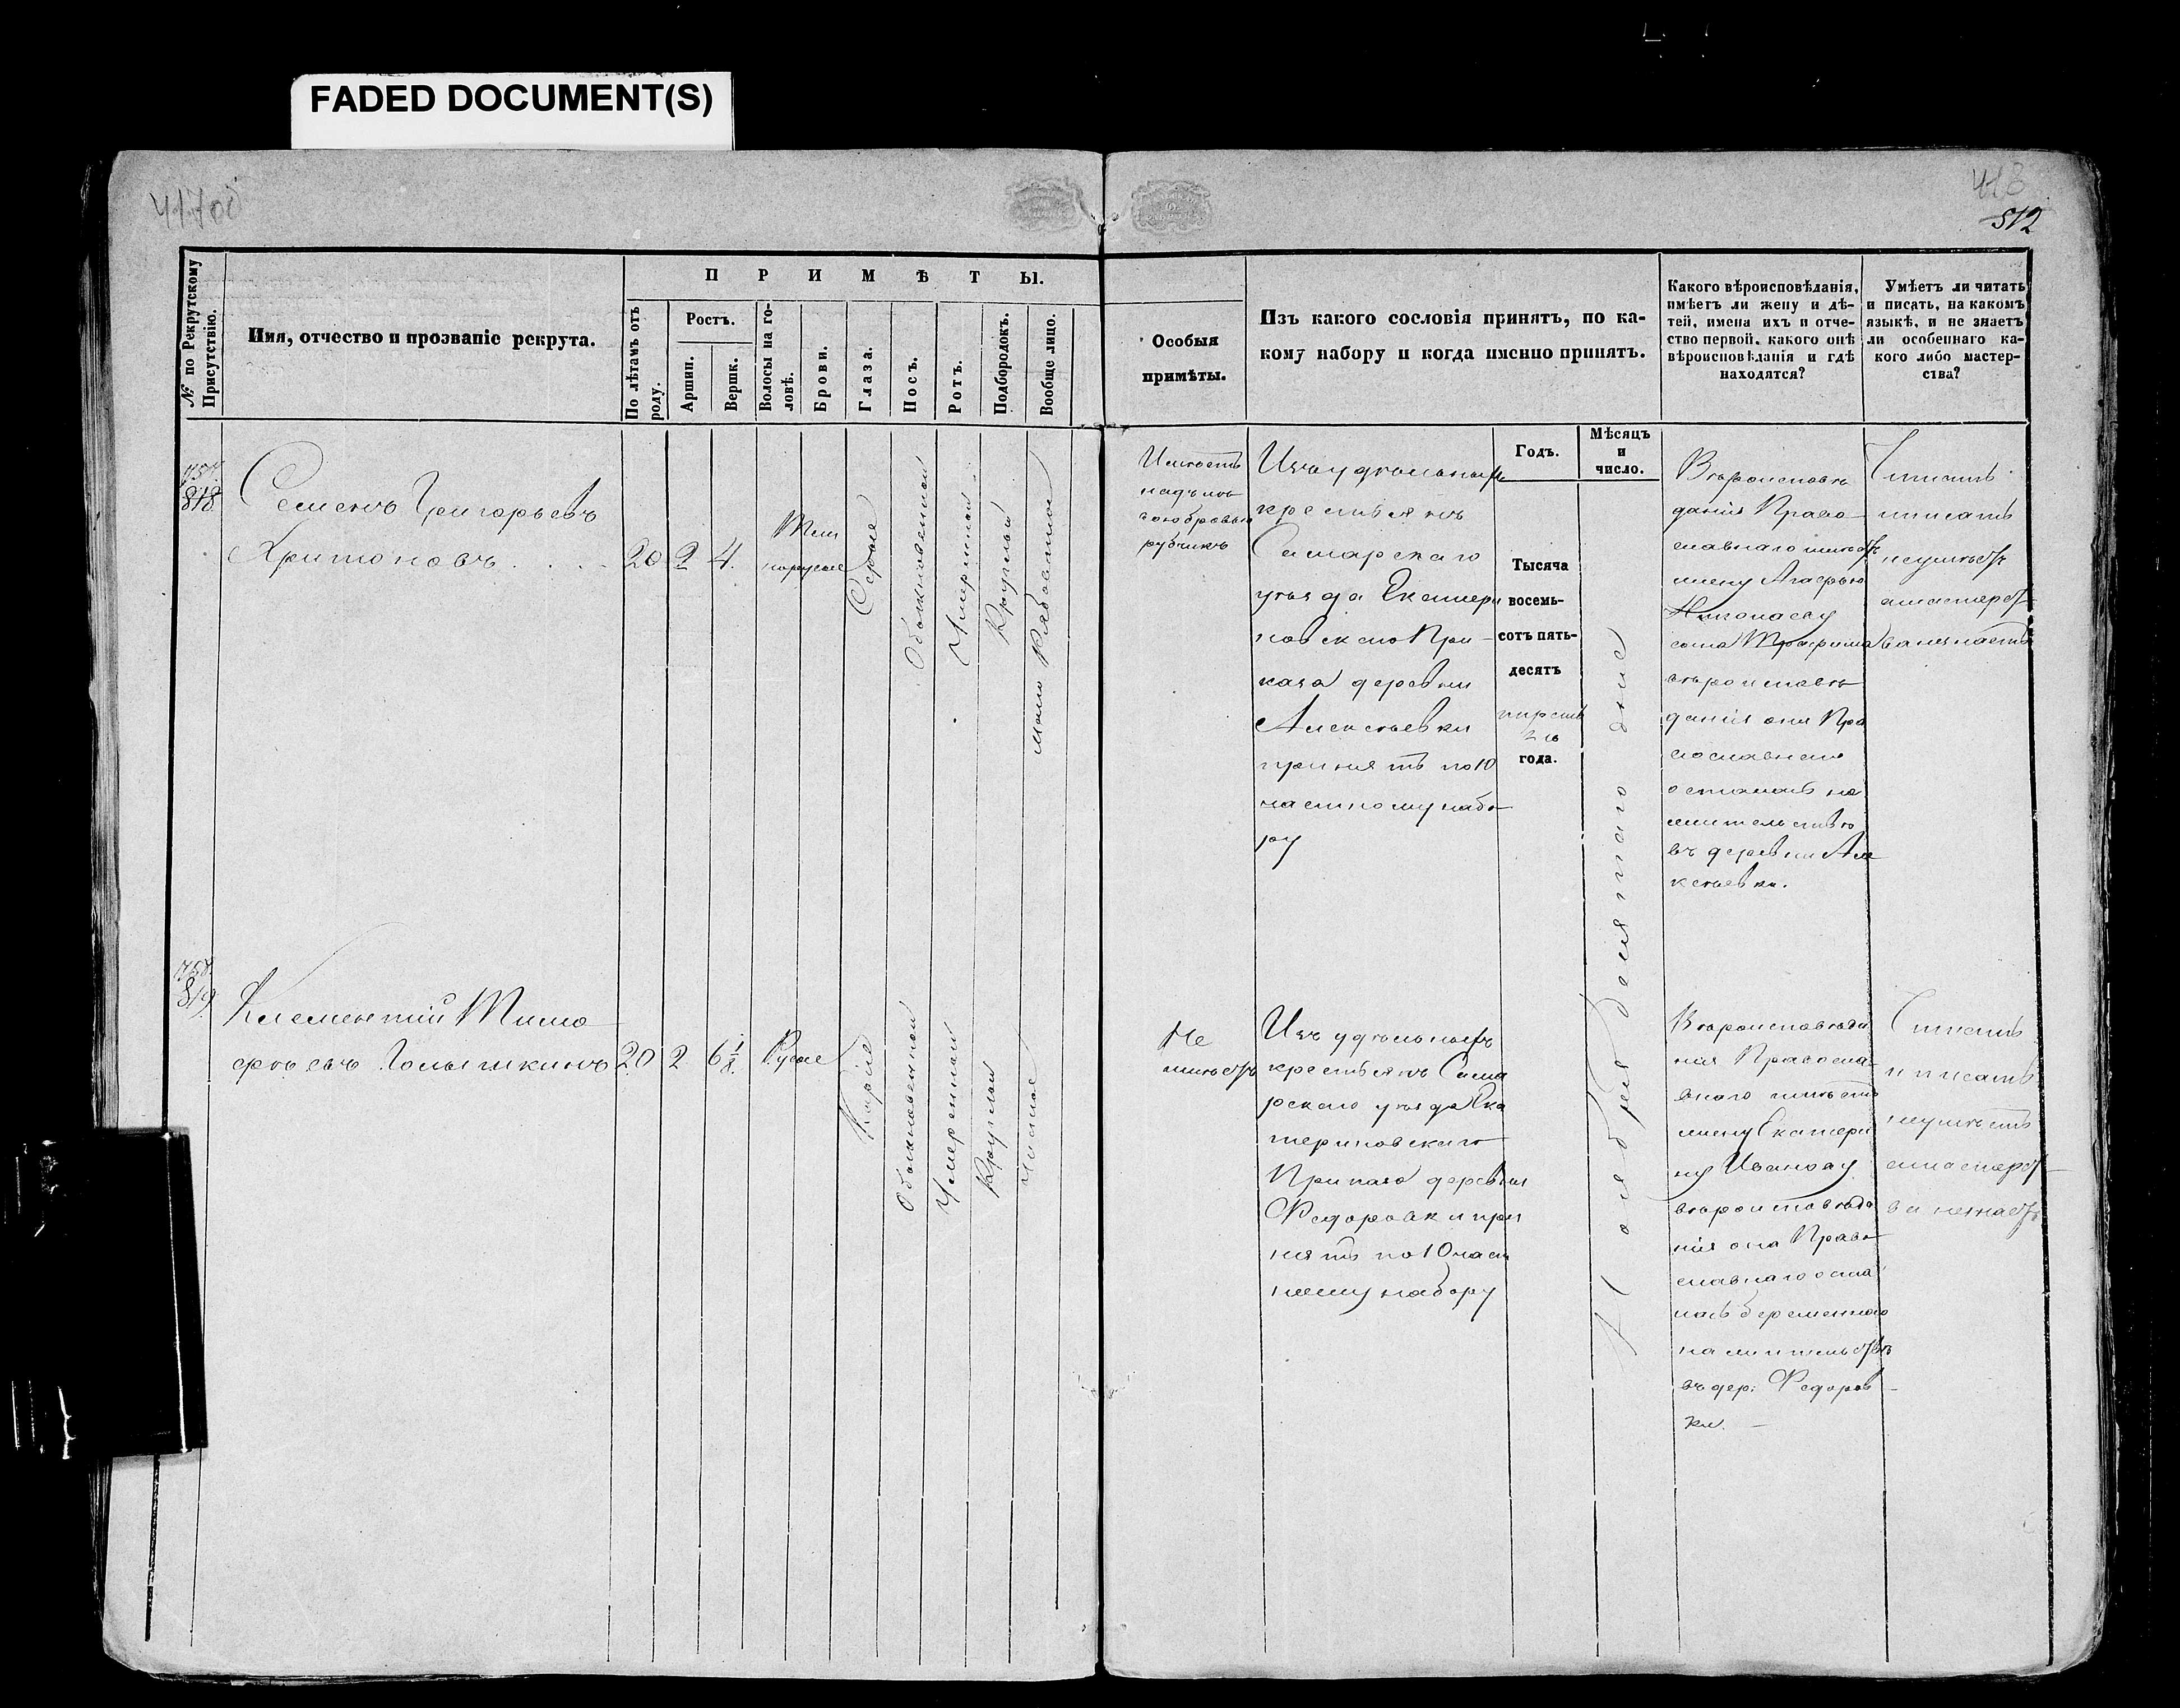 FADED DOCUMENT(S)
41700
418
512
№ по Рекрутскому Присутствію.
Имя, отчество и прозваніе рекрута.
П Р И М Ѣ Т Ы.
По лѣтамъ отъ роду.
Ростъ.
Аршин.
Вершк.
Волосы на головѣ.
Брови.
Глаза.
Носъ.
Ротъ.
Подбородокъ.
Вообще лицо.
Особыя
примѣты.
Изъ какого сословія принятъ, по ка-
кому набору и когда именно принятъ.
Годъ.
Мѣсяцъ
и
число.
Какого вѣроисповѣданія,
имѣетъ ли жену и дѣ-
тей, имена ихъ и отче-
ство первой, какого онѣ
вѣроисповѣданія и гдѣ
находятся?
Умѣетъ ли читать
и писать, на какомъ
языкѣ, и не знаетъ
ли особеннаго ка-
кого либо мастер-
ства?
818
Семенъ Григорьевъ
Харитоновъ
20 2 4
Темнорусые
Серые
Обыкновенной
Умеренной
Круглой
мало Рябоватое
Имѣетъ
надъ
бровью
рубчикъ
Изъ удѣльныхъ
крестьянъ
Самарскаго
уѣзда Екатери
новскаго При-
каза деревни
Алексѣевки
принятъ по 10
частному набо-
ру
Тысяча
восемь-
сотъ пять-
десятъ
года.
Ноября девятаго дня
Вѣроисповѣ
данія Право-
славнаго имѣетъ
жену Агафью
сына Трофима
вѣроисповѣ
данія они Пра
вославнаго
осталась на
жительствѣ
въ деревни Але
ксѣевки.
Читать
писать
неумѣетъ
а мастерст-
ва незнаетъ
819
Клементій Тимо
фѣевъ Голышкинъ
20 2 6 1/8
Русые
Каріе
Обыкновенной
Умеренной
Круглой
Чистое
Не
имѣетъ
Изъ удѣльныхъ
крестьянъ Сама
рскаго уѣзда Ека
териновскаго
Приказа деревни
Федоровки при
нятъ по 10 част
ному набору
Вѣроисповѣда
нія Правосла-
внаго имѣетъ
жену Екатери
ну Иванову
вѣроисповѣда
нія она Право-
славнаго оста
лась беременною
на жительствѣ
въ дер: Федоров-
ки.
Читать
и писать
неумѣетъ
а мастерст-
ва незнаетъ